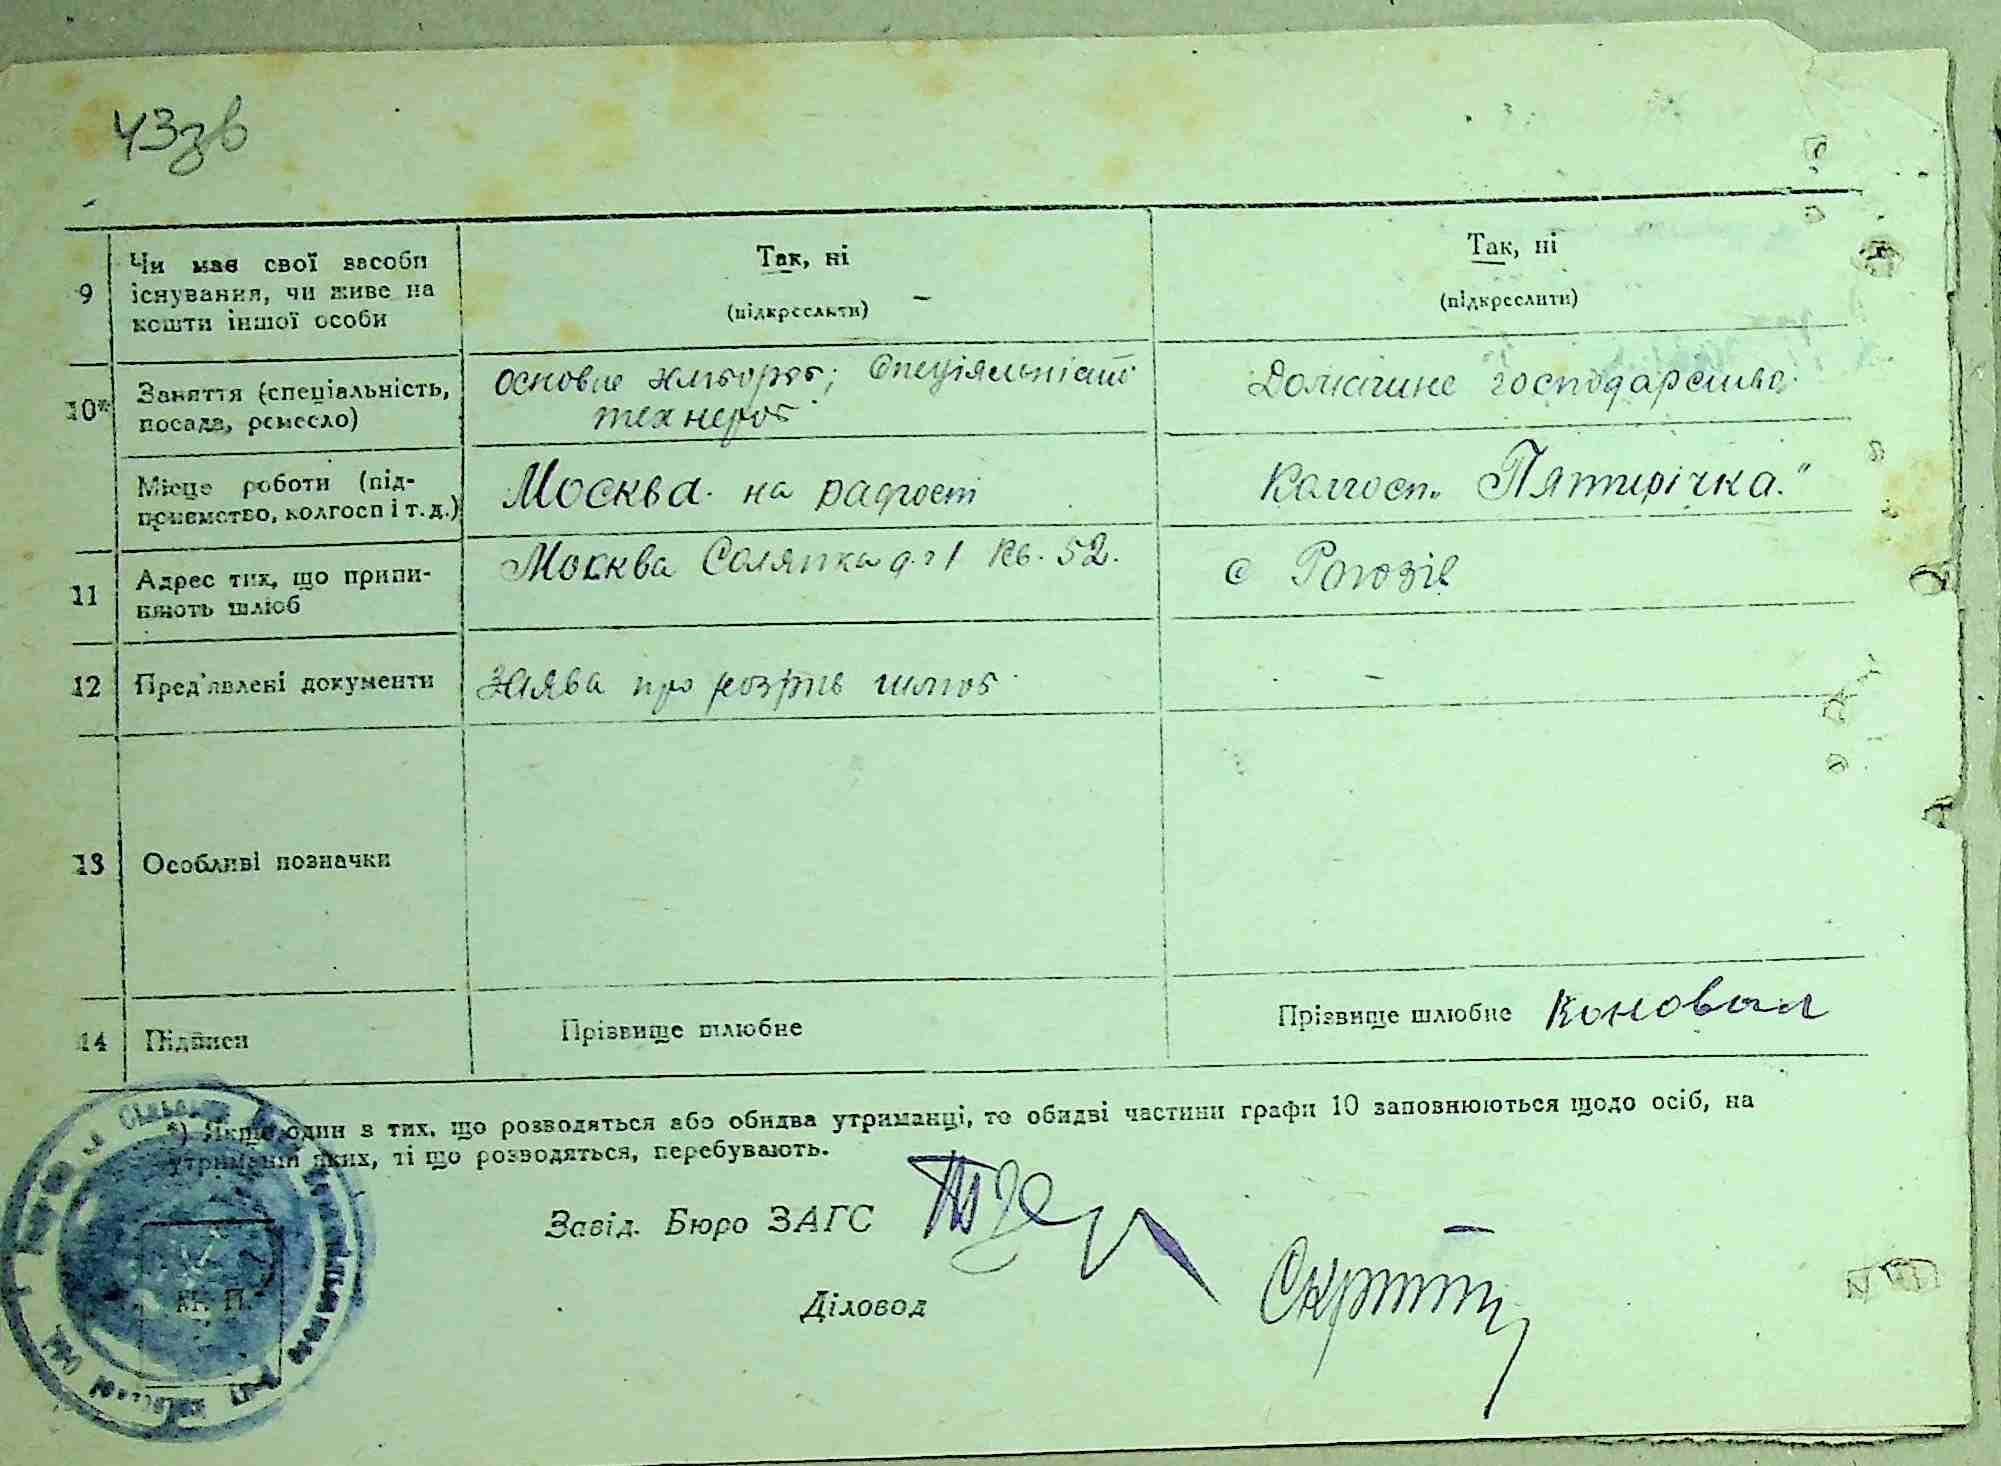 43зв
9
Чи має свої засоби
існування, чи живе на
кошти іншої особи
Так, ні
(підкреслити)
Так, ні
(підкреслити)
10*
Заняття (спеціальність,
посада, ремесло)
основне хлібороб; спеціяльність
Домашне господарство
Місце роботи (під-
приємство, колгосп і т. д.)
Москва. на работі
Колгосп „Пятирічка."
11
Адрес тих, що припи-
няють шлюб
Москва Солянка д. 1 кв. 52.
с Рогозів
12
Пред'явлені документи
Заява про розрив шлюб
-
13
Особливі позначки
14
Підписи
Прізвище шлюбне
Прізвище шлюбне Коновал
*) Якщо один з тих, що розводяться або обидва утриманці, то обидві частини графи 10 заповнюються щодо осіб, на
утриманні яких, ті що розводяться, перебувають.
Завід. Бюро ЗАГС
Діловод
М. П.